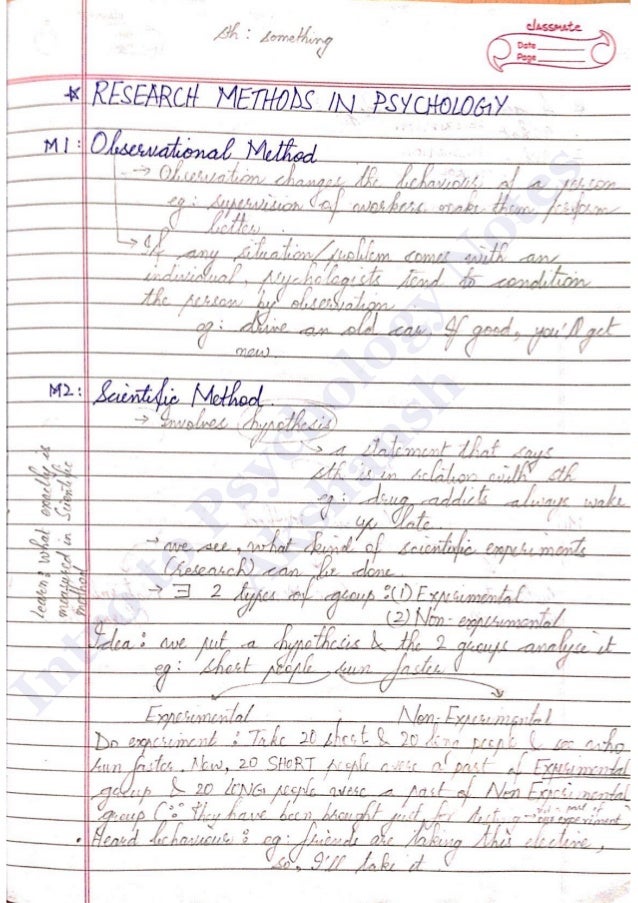 sth : something
classmate
Date
Page
* RESEARCH METHODS IN PSYCHOLOGY
M1 : Observational Method
→ Observation changes the behaviour of a person
eg : supervision of workers make them perform
better.
→ If any situation/problem comes with an
individual, psychologists tend to condition
the person by observation
eg : drive an old car. If good, you'll get
new.
M2 : Scientific Method.
→ Involves hypothesis
→ a statement that says
sth is in relation with sth
eg : drug addicts always wake
up late.
learn : What exactly is
measured in Scientific
method
→ we see, what kind of scientific experiments
(research) can be done.
→ ∃ 2 types of group : (1) Experimental
(2) Non-experimental
Idea : we put a hypothesis & the 2 groups analyse it
eg : short people run faster
Experimental Non-Experimental
Do experiment : Take 20 short & 20 long people & see who
run faster. Now, 20 SHORT people were a part of Experimental
group & 20 LONG people were a part of Non Experimental
group (∵ they have been brought just for
part of
experiment,
• Heard behaviour : eg : friends are taking this elective,
so, I'll take it.
Intro to Psychology Notes
Akshansh